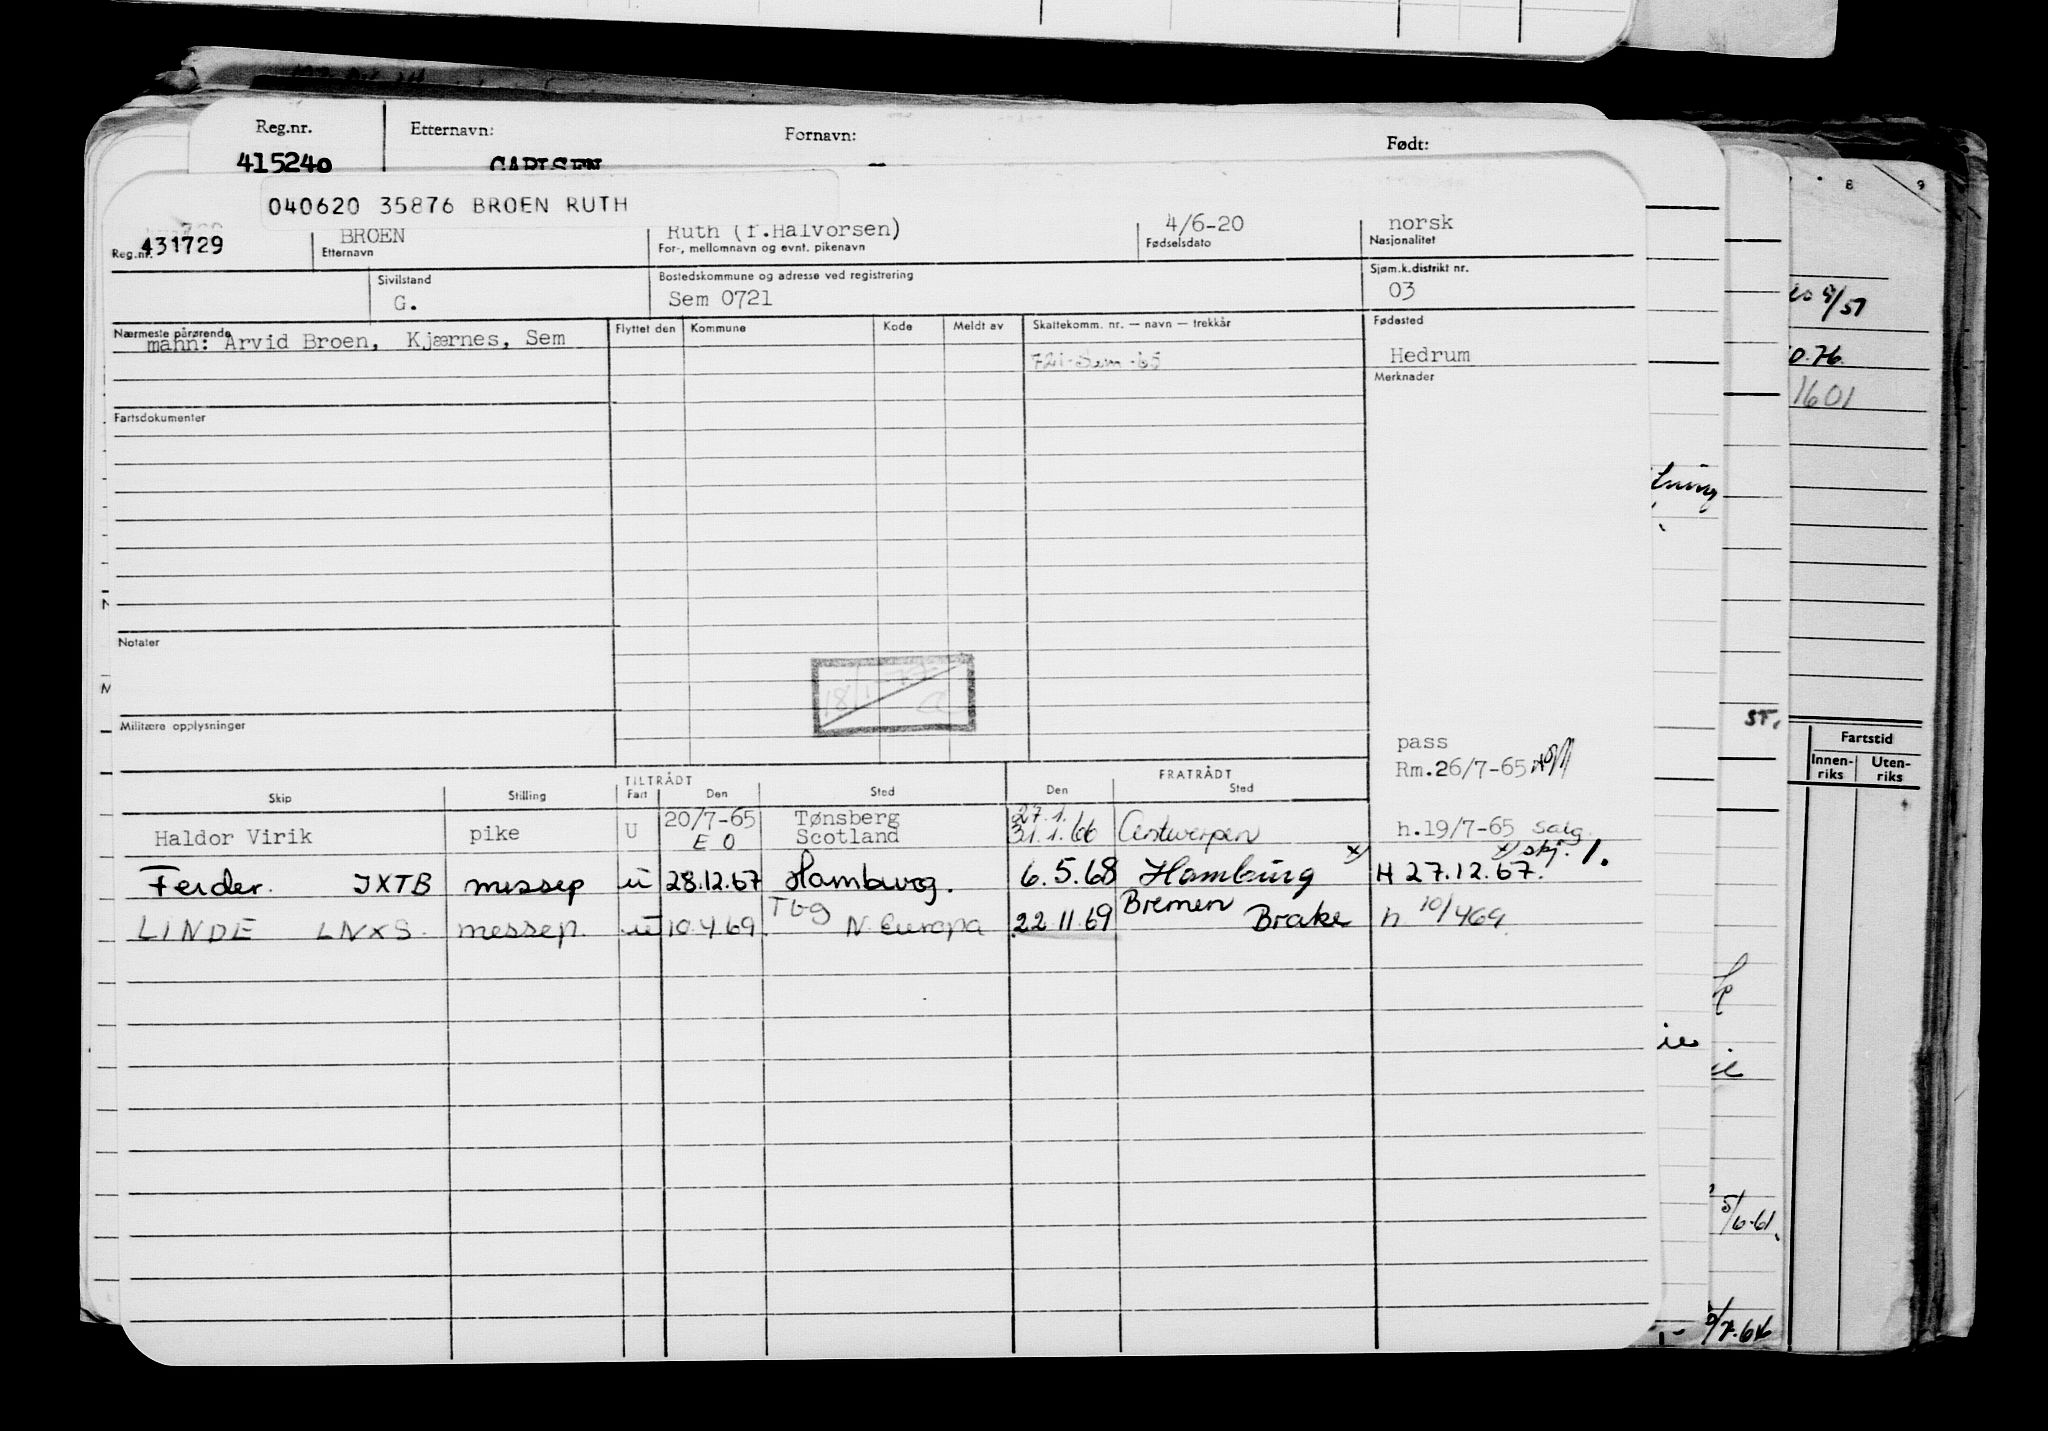 Reg.nr. Etternavn: Fornavn: Født:
415240 CARLSEN
040620 35876 BROEN RUTH
431729 BROEN Ruth (f.Halvorsen) 4/6-20 norsk
Reg.nr. Etternavn For-, mellomnavn og evnt. pikenavn Fødselsdato Nasjonalitet
Sivilstand Bostedskommune og adresse ved registrering Sjøm.k.distrikt nr.
G. Sem 0721 03
Nærmeste pårørende Flyttet den Kommune Kode Meldt av Skattekomm. nr. — navn — trekkår Fødested
mann: Arvid Broen, Kjærnes, Sem
721-Sem -65 Hedrum
Merknader
Fartsdokumenter
Notater
18/1-77
Militære opplysninger
pass
Rm.26/7-65
TILTRÅDT FRATRÅDT
Skip Stilling Fart Den Sted Den Sted
Haldor Virik pike U 20/7-65 Tønsberg 27.1. h.19/7-65 salg.
E O Scotland 31.1.66 Antwerpen x) x) skj. 1.
Ferder. JXTB messep u 28.12.67 Hamburg. 6.5.68 Hamburg H 27.12.67.
LINDE LNXS. messep. u 10.4.69. Tbg N. Europa 22.11.69 Bremen Brake h 10/469
8 9
9/51
0.76.
1601
ST.
Fartstid
Innen-riks Uten-riks
5/6-61.
/7.66